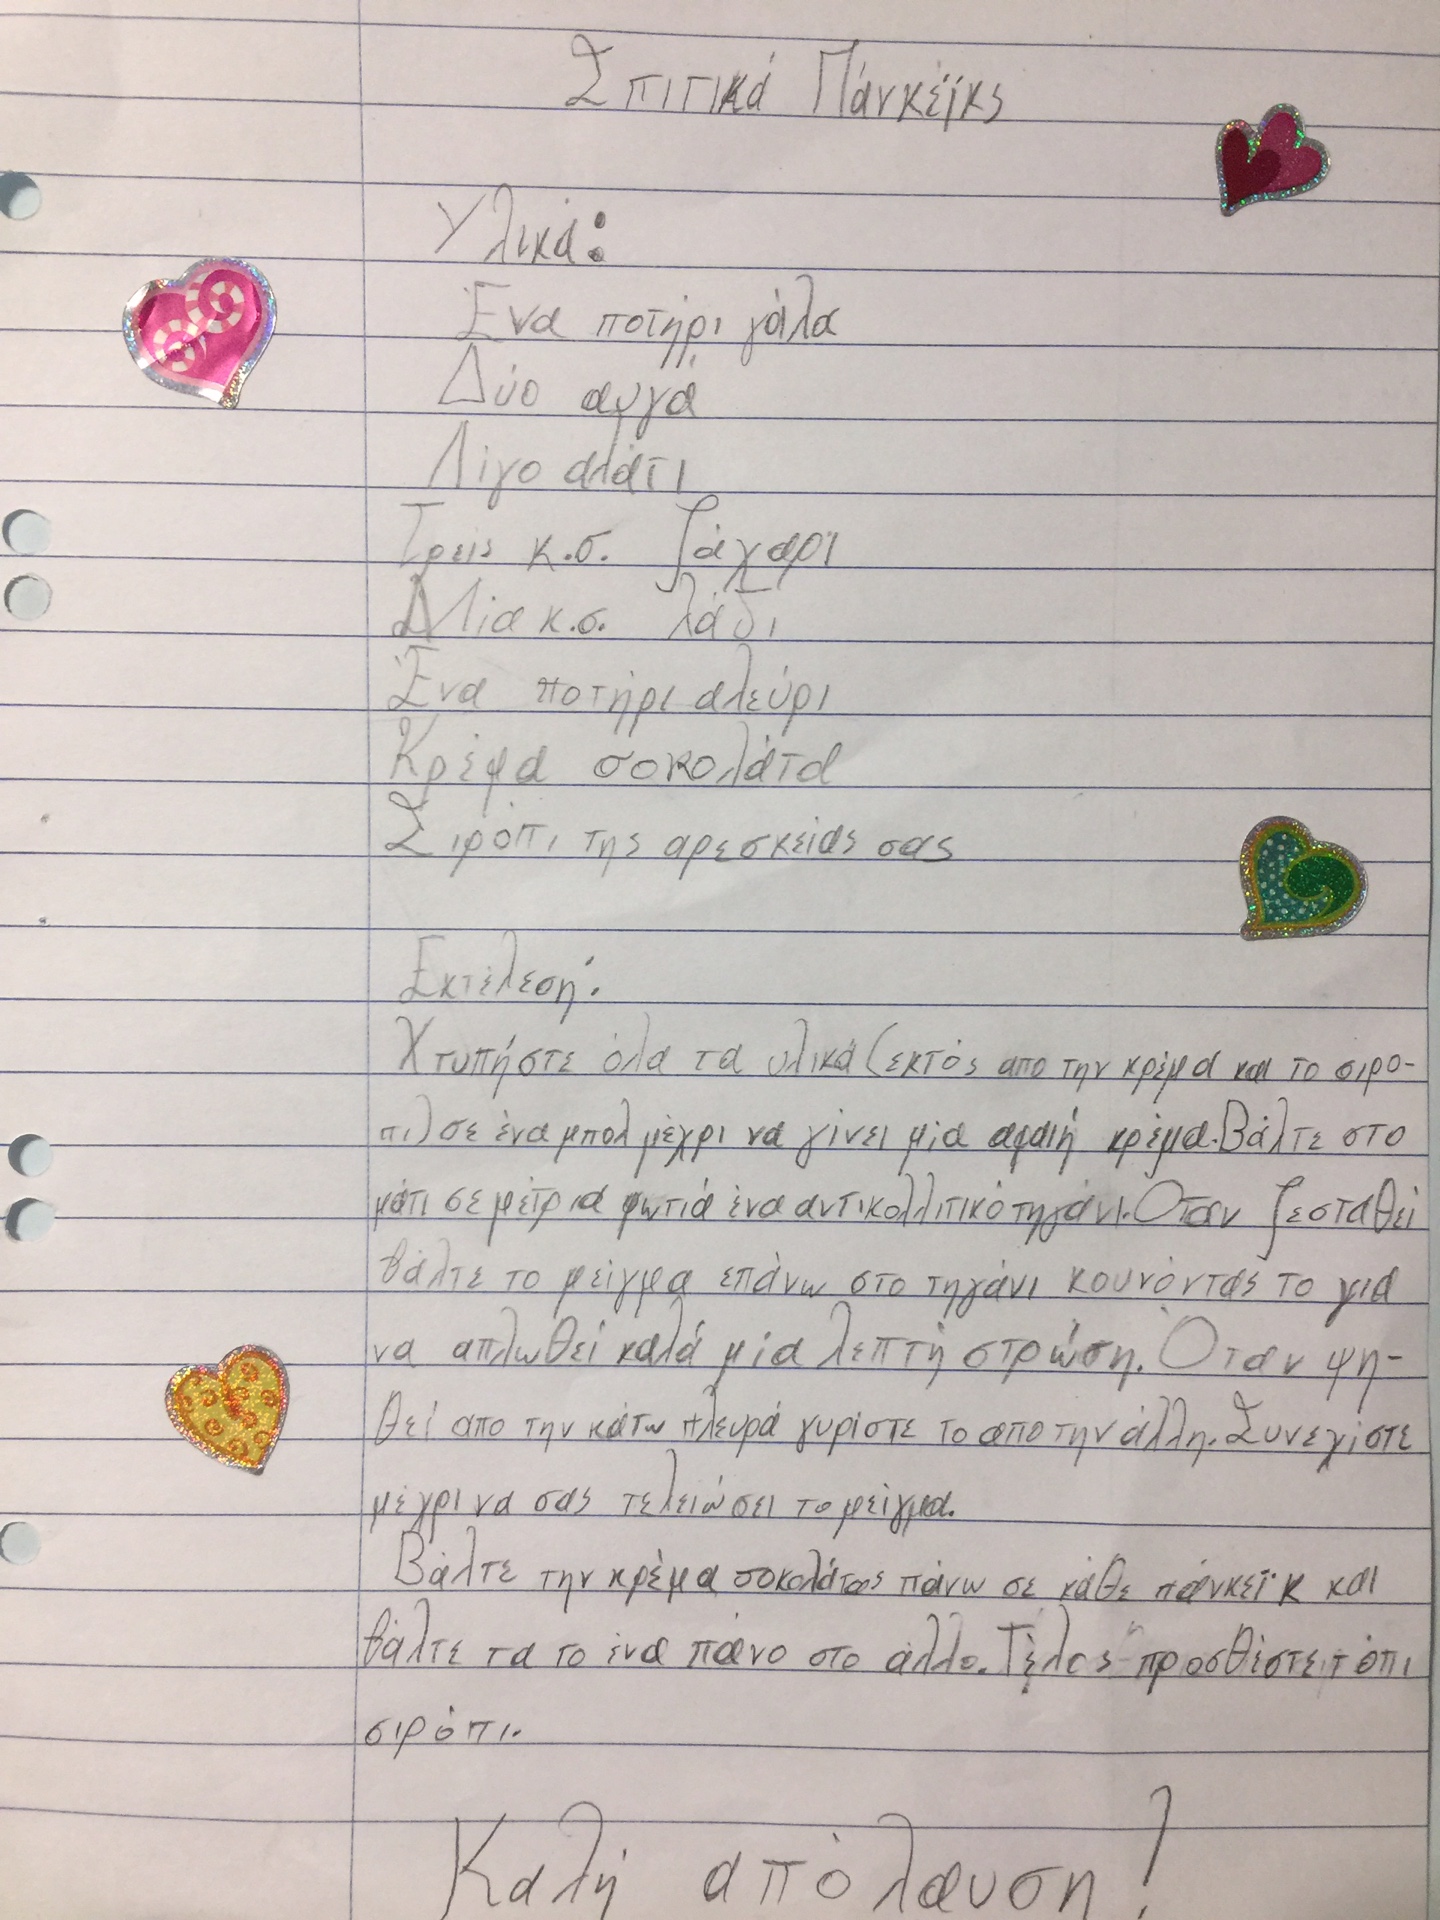 Σπιτικά Πάνκέϊκς
Υλικά:
Ένα ποτήρι γάλα
Δύο αυγά
Λίγο αλάτι
Τρεις κ.σ. ζάχαρι
Μία κ.σ. λάδι
Ένα ποτήρι αλεύρι
Κρέμα σοκολάτα
Σιρόπι της αρεσκείας σας
Εκτέλεση:
Χτυπήστε όλα τα υλικά (εκτός απο την κρέμα και το σιρο-
πι) σε ένα μπολ μέχρι να γίνει μία αφαιή κρέμα. Βάλτε στο
μάτι σε μέτρια φωτιά ένα αντικολλιτικό τηγάνι. Όταν ζεσταθεί
βάλτε το μείγμα επάνω στο τηγάνι κουνόντας το για
να απλωθεί καλά μία λεπτή στρώση. Όταν ψη-
θεί απο την κάτω πλευρά γυρίστε το απο την άλλη. Συνεχίστε
μέχρι να σας τελειώσει το μείγμα.
Βάλτε την κρέμα σοκολάτας πάνω σε κάθε πάνκεϊκ και
βάλτε τα το ένα πάνο στο άλλο. Τέλος προσθέστε τ όπι
σιρόπι.
Καλή απόλαυση!